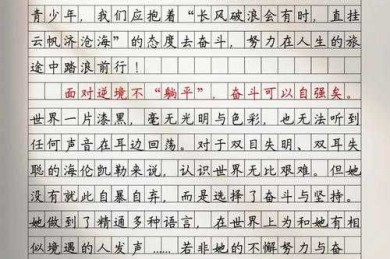 青少年，我们应抱着“长风破浪会有时，直挂
云帆济沧海”的态度去奋斗，努力在人生的旅
途中踏浪前行！
面对逆境不“躺平”，奋斗可以自强矣。
世界一片漆黑，毫无光明与色彩，也无法听到
任何声音在耳边回荡。对于双目失明、双耳失
聪的海伦凯勒来说，认识世界无比艰难。但她
没有就此自暴自弃，而是选择了奋斗与坚持。
她做到了精通多种语言，在世界上为和她有相
似境遇的人发声……若非她的不懈努力与奋